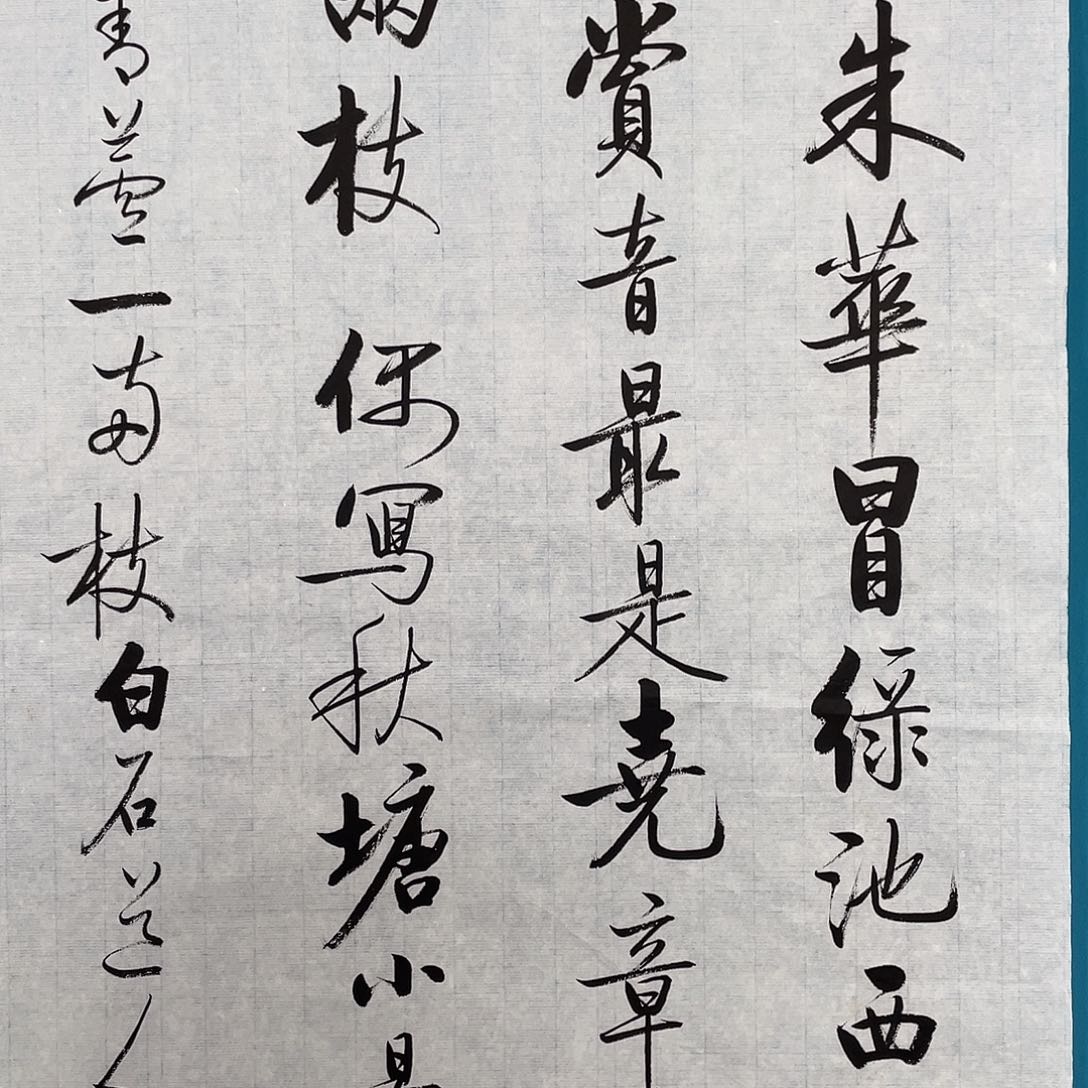 朱華冒綠池西
賞音最是堯章
兩枝 偶寫秋塘小
青蘆一兩枝白石道人